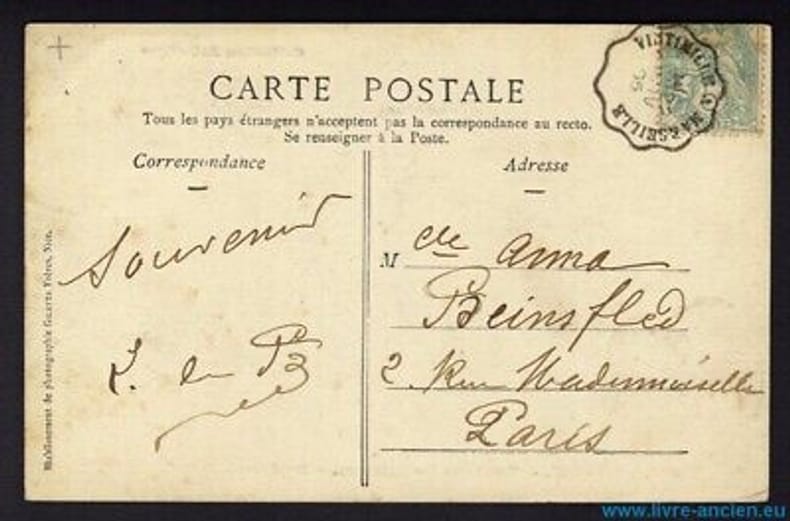 CARTE POSTALE
Tous les pays étrangers n'acceptent pas la correspondance au recto.
Se renseigner à la Poste.
Correspondance
Souvenir
Adresse
M elle Anna
Beinsfled
2. Rue Mademoiselle
Paris
VINTIMILLE A MARSEILLE
Etablissement de photographie GILETTA Frères, Nice.
www.livre-ancien.eu